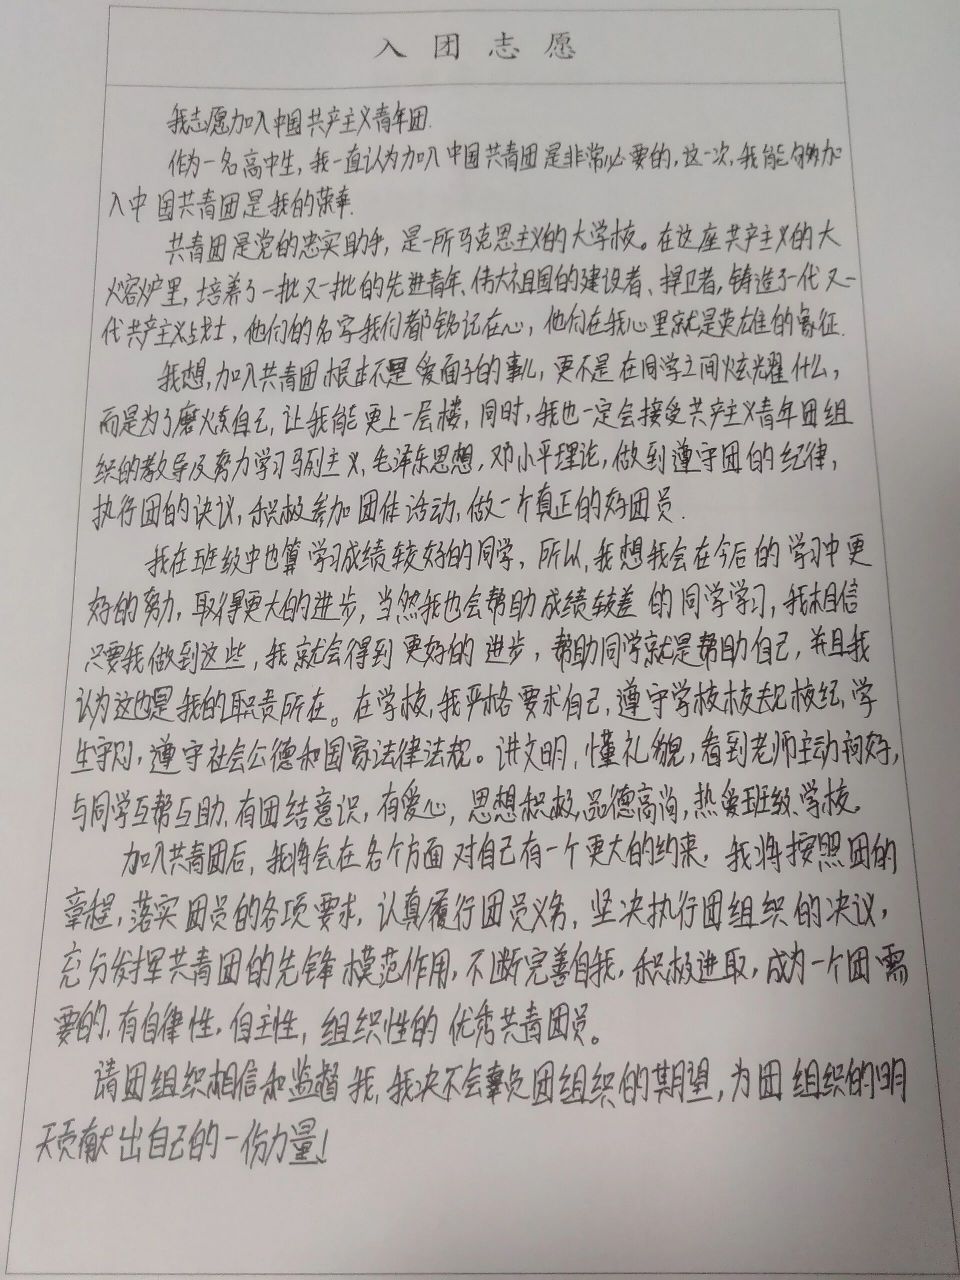 入团志愿
我志愿加入中国共产主义青年团.
作为一名高中生，我一直认为加入中国共青团是非常必要的，这一次，我能够加
入中国共青团是我的荣幸.
共青团是党的忠实助手，是一所马克思主义的大学校。在这座共产主义的大
火熔炉里，培养了一批又一批的先进青年、伟大祖国的建设者、捍卫者，铸造了一代又一
代共产主义战士，他们的名字我们都铭记在心，他们在我心里就是英雄的象征.
我想，加入共青团根本不是爱面子的事儿，更不是在同学之间炫耀什么，
而是为了磨炼自己，让我能更上一层楼，同时，我也一定会接受共产主义青年团组
织的教导及努力学习马列主义，毛泽东思想，邓小平理论，做到遵守团的纪律，
执行团的决议，积极参加团体活动，做一个真正的好团员.
我在班级中也算学习成绩较好的同学，所以，我想我会在今后的学习中更
好的努力，取得更大的进步，当然我也会帮助成绩较差的同学学习，我相信
只要我做到这些，我就会得到更好的进步，帮助同学就是帮助自己，并且我
认为这也是我的职责所在。在学校，我严格要求自己，遵守学校校规校纪，学
生守则，遵守社会公德和国家法律法规。讲文明，懂礼貌，看到老师主动问好，
与同学互帮互助，有团结意识，有爱心，思想积极，品德高尚，热爱班级、学校。
加入共青团后，我将会在各个方面对自己有一个更大的约束，我将按照团的
章程，落实团员的各项要求，认真履行团员义务，坚决执行团组织的决议，
充分发挥共青团的先锋模范作用，不断完善自我，积极进取，成为一个团需
要的，有自律性，自主性，组织性的优秀共青团员。
请团组织相信和监督我，我决不会辜负团组织的期望，为团组织的明
天贡献出自己的一份力量！